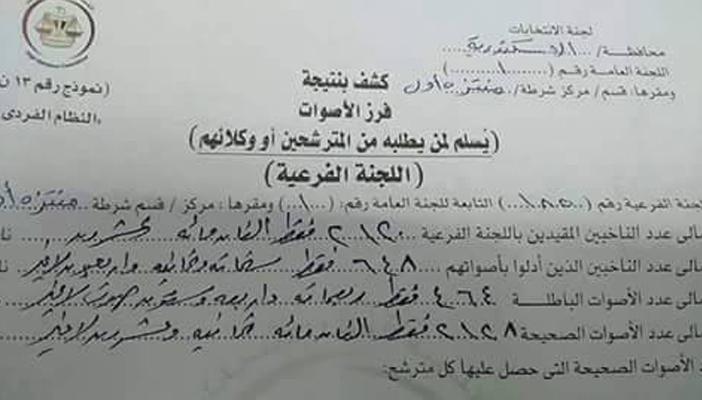 لجنة الانتخابات
محافظة/ الاسكندرية
اللجنة العامة رقم (١)
ومقرها: قسم/ مركز شرطة/ منتزه أول
١٢
(نموذج رقم ١٣ ن
النظام الفردى
كشف بنتيجة
فرز الأصوات
(يُسلم لمن يطلبه من المترشحين أو وكلائهم)
(اللجنة الفرعية)
لجنة الفرعية رقم ( ) التابعة للجنة العامة رقم: (١) ومقرها: مركز / قسم شرطة منتزه أو
مالى عدد الناخبين المقيدين باللجنة الفرعية ٢١٢٠ فقط الفان ومائه عشرون نا
مالى عدد الناخبين الذين أدلوا بأصواتهم ٦٤٨ فقط ستمائه وثمانيه واربعون لاغير نا
مالى عدد الأصوات الباطلة ٤٦٤ فقط ربعمائه واربعه وستون صوت لاغير
مالى عدد الأصوات الصحيحة ٢١٢٨ فقط الفان ومائه ثمانيه وعشرون لاغير
د الأصوات الصحيحة التى حصل عليها كل مترشح: